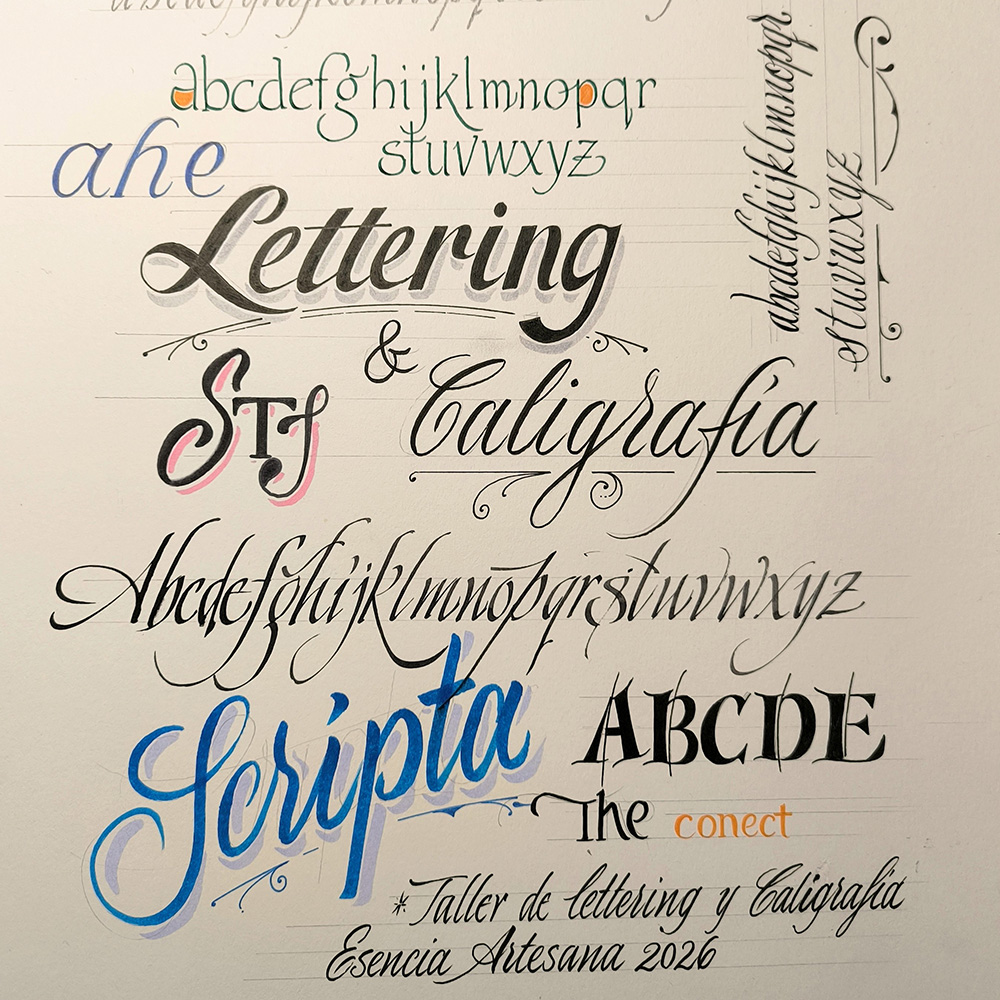 abcdefghijklmnopqr
stuvwxyz
ahe
Lettering
&
STf
Caligrafía
Abcdefghijklmnopqrstuvwxyz
Scripta
ABCDE
The conect
*Taller de lettering y Caligrafía
Esencia Artesana 2026
abcdefghijklmnopqr
stuvwxyz